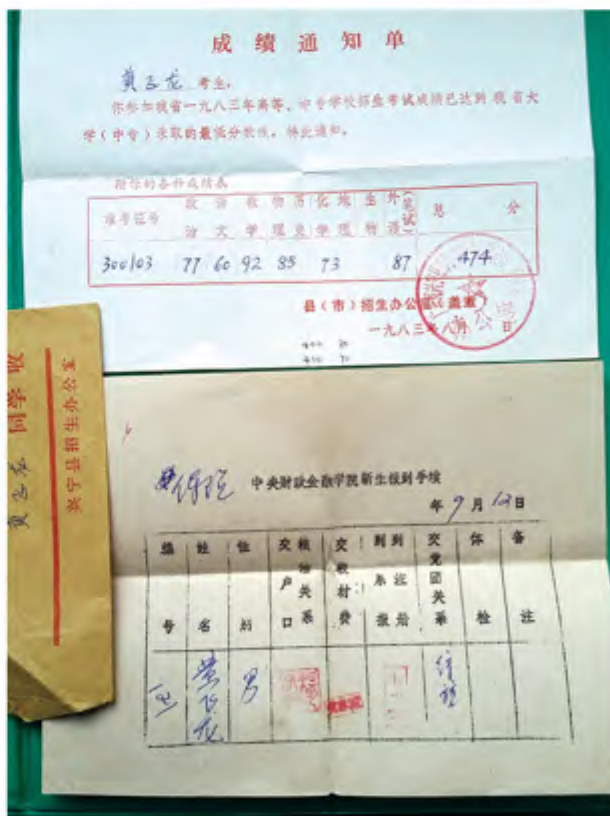 成绩通知单
黄飞龙 考生:
你参加我省一九八三年高等、中专学校招生考试成绩已达到我省大
学(中专)录取的最低分数线,特此通知。
附你的各科成绩表
准考证号 政治 语文 数学 物理 历史 化学 地理 生物 外语(笔试) 总分
300103 77 60 92 85 73 87 474
县(市)招生办公室(盖章)
一九八三年八月 日
黄飞龙 同学收
兴宁县招生办公室
保险 中央财政金融学院新生报到手续
年9月12日
编号 姓名 性别 交户口 粮油关系 交教材费 到系报到 注册 交党团关系 体检 备注
黄飞龙 男